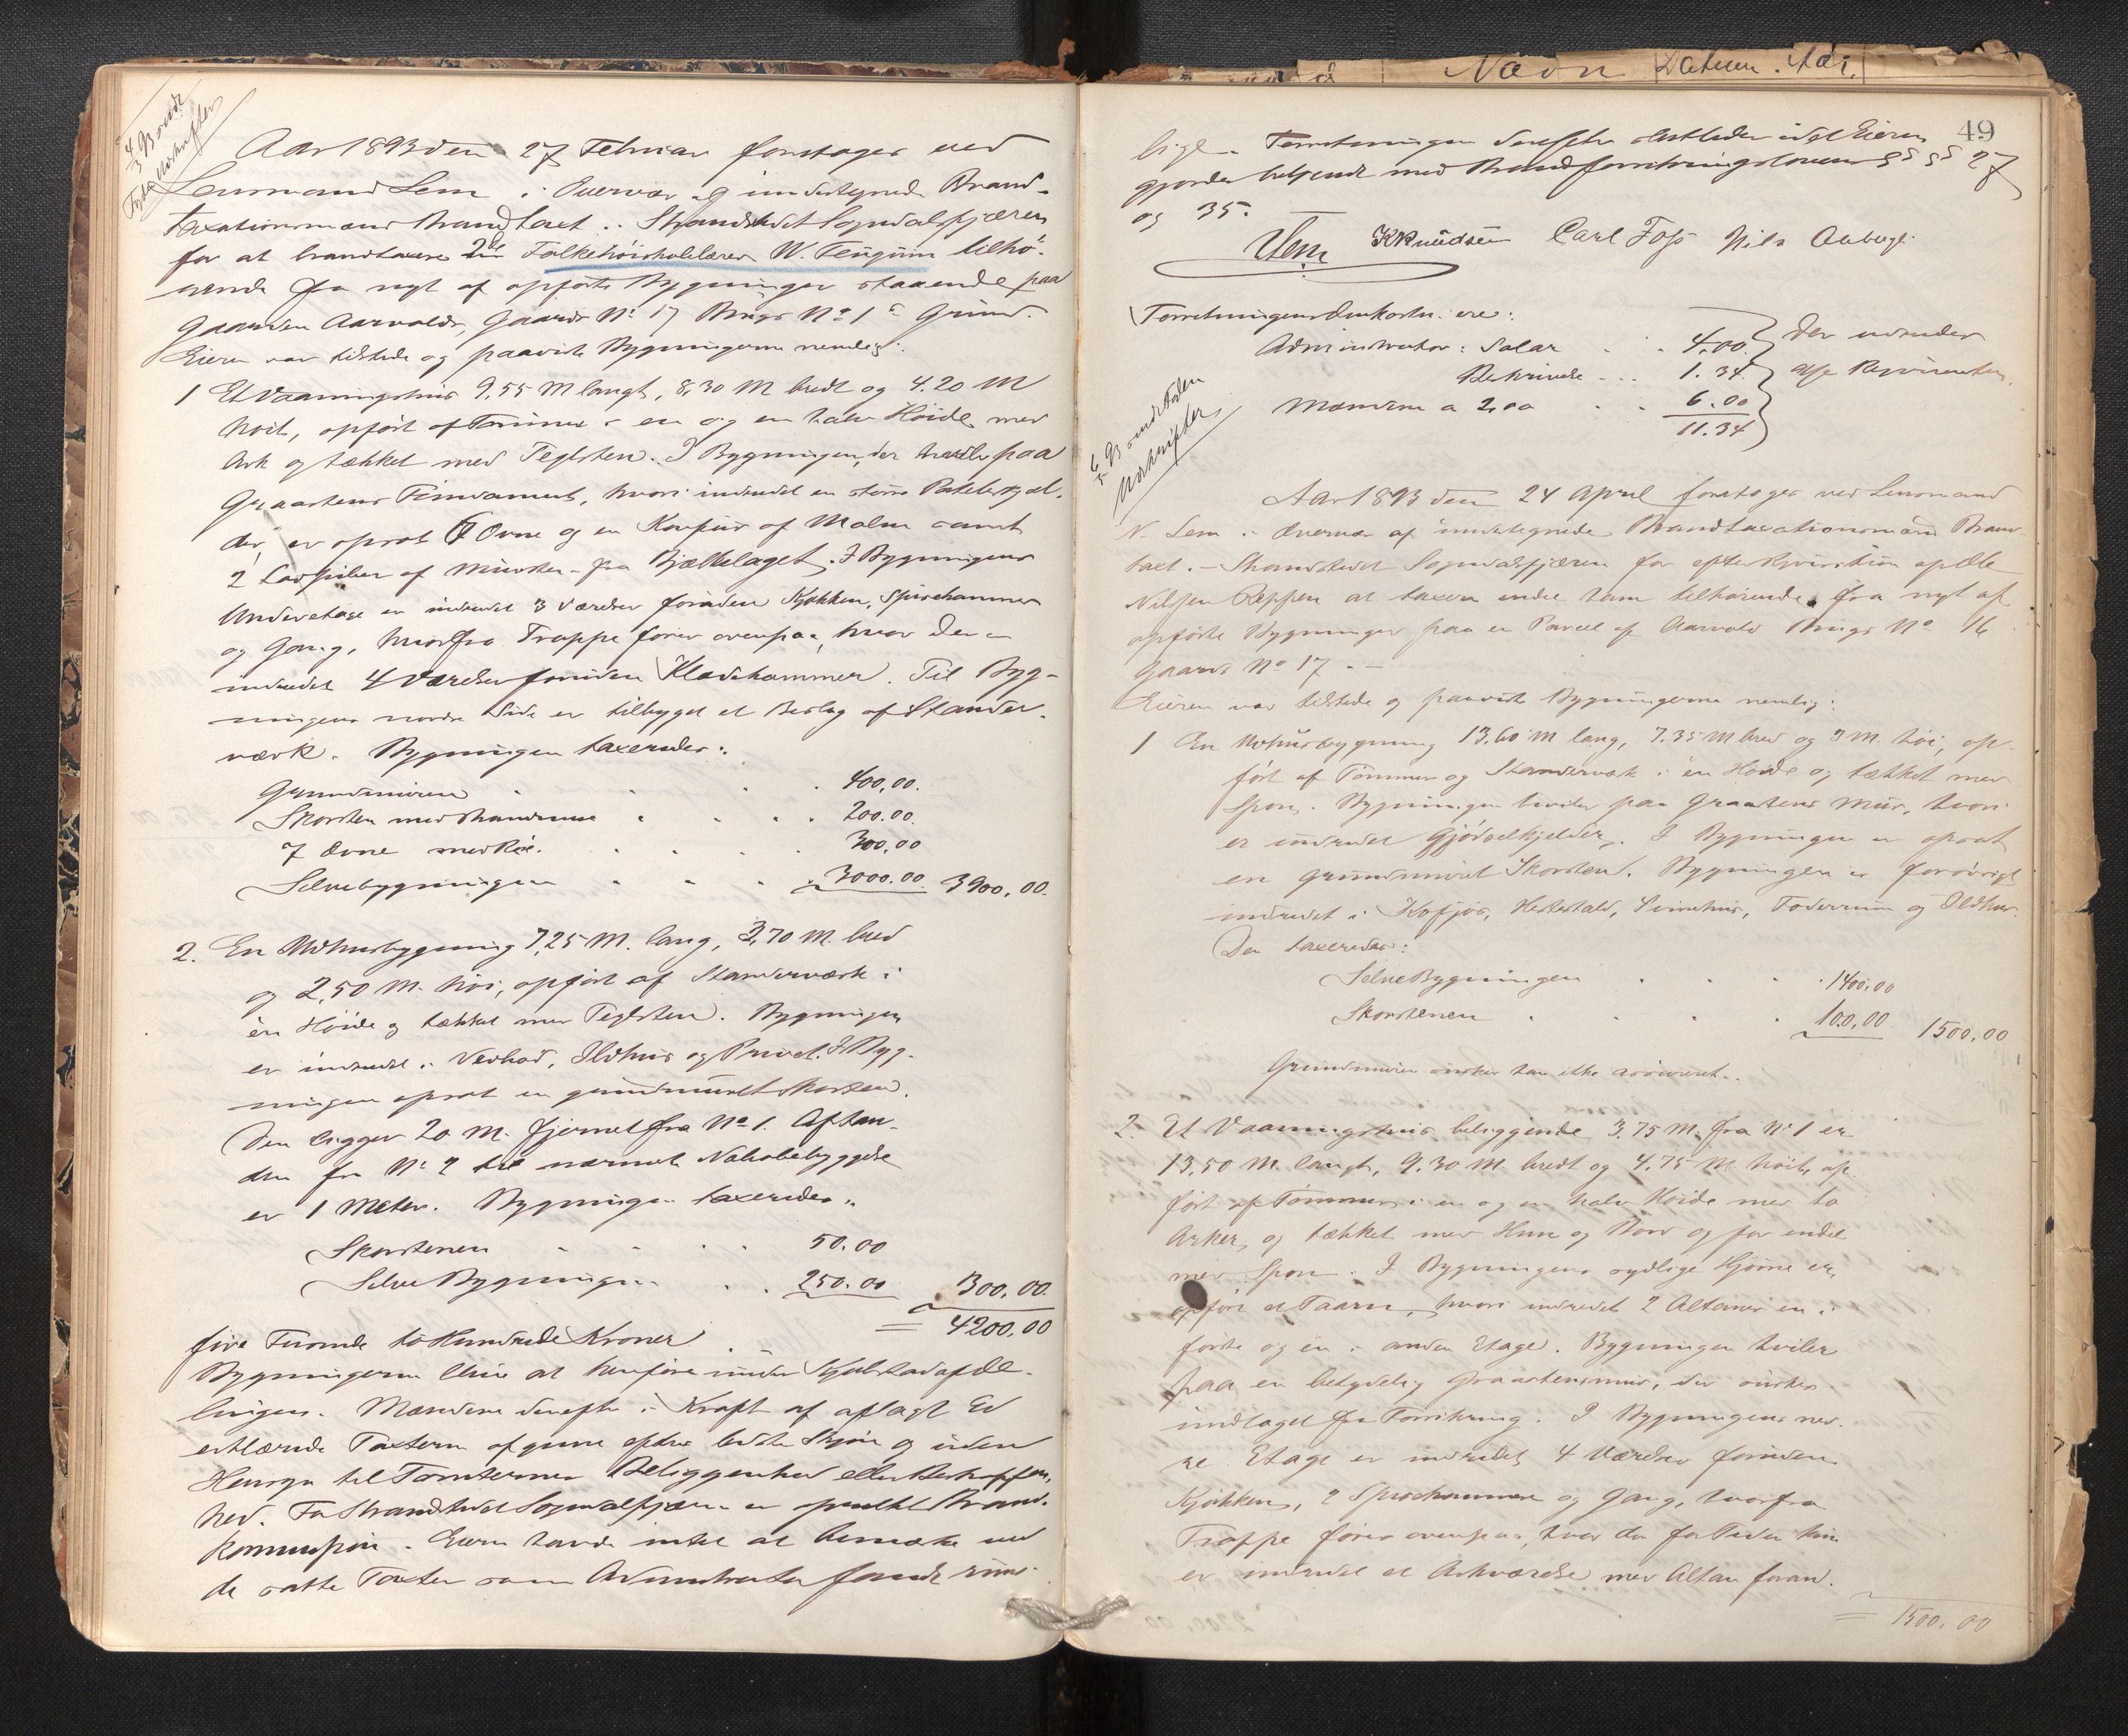 4/3 93 Brandt
Aar 1893 den 27 Februar foretoges ved
Lensmand Lem i Overvær af undertegnede Brand-
taxationsmænd Brandtaxt i Strandstedet Sogndalsfjæren
for at brandtaxere 2de Folkehøiskolelærer W. Tengum tilhø-
rende fra nyt af opførte Bygninger staaende paa
Gaarden Aarvolds, Gaards No 17 Brugs No 1 Grund.
Eieren var tilstede og paaviste Bygningerne nemlig:
1 Et Vaaningshus 9,55 M langt, 8,30 M bredt og 4.20 M
høit, opført af Tømmer i en og en halv Høide med
Ark og tækket med Teglsten. I Bygningen, der hviler paa
Graastens Fundament, hvori indredet en større Potetkjæl-
der, er opsat 7 Ovne og en Komfur af Malm samt
2 Ladpiber af Mursten fra Bjælkelaget. I Bygningens
Underetage er indredet 3 Værelser foruden Kjøkken, Spisekammer
og Gang, hvorfra Trappe fører ovenpaa, hvor der er
indredet 4 Værelser foruden Klædekammer. Til Byg-
ningens nordre Side er tilbyget et Beslag af Stander-
værk. Bygningen taxeredes:
Grundmuren 400,00.
Skorsten med Brandmur 200.00.
7 Ovne med Rør. 300,00
Selve bygningen 3000.00. 3900,00.
2. En Udhusbygning 7,25 M. lang, 3,70 M. bred
og 2,50 M. høi, opført af Standerværk i
èn Høide og tækket med Teglsten. Bygningen
er indredet i Vedbod, Ildhus og Privet. I Byg-
ningen opsat en grundmuret Skorsten.
Den ligger 20 M. fjernet fra No 1. Afstan-
den fra No 2 til nærmeste Nabobebyggelse
er 1 Meter. Bygningen taxeredes:
Skorstenen 50.00
Selve Bygningen 250.00 300,00.
= 4200,00
fire Tusinde to Hundrede Kroner
Bygningerne blive at henføre under Kjøbstadafde-
lingen. Mændene derefter i Kraft af aflagt Ed
erklærede Taxterne afgivne efter bedste Skjøn og uden
Hensyn til Tomternes Beliggenhed eller Beskaffen-
hed. For Strandstedet Sogndalsfjæren er opnævnt Brand-
kommission. Eieren havde intet at bemærke ved
de satte Taxter som Administrator fandt rime-
Navn Datum. Aar.
49
lige. Forretningen derefter sluttedes idet Eieren
gjordes bekjendt med Brandforsikringslovens §§ 27
og 35.
Lem K Knudsen Carl Foss Nils Aaberge.
Forretningens Omkostn. ere:
Administrator: Salar 4,00.
Beskrivelse 1.34.
Mændene a 2,00 6.00
11.34
der udredes
af Rekvirenten.
Aar 1893 den 24 April foretoges ved Lensmand
N. Lem i Overvær af undertegnede Brandtaxationsmænd Brand-
taxt i Strandstedet Sogndalsfjæren for efter Rekvisition af Ole
Nilsen Reppen at taxere endel ham tilhørende fra nyt af
opførte Bygninger paa en Parcel af Aarvold Brugs No 16
Gaards No 17.
Eieren var tilstede og paaviste Bygningerne nemlig:
1 En Udhusbygning 13,60 M lang, 7.35 M bred og 3 M. høi, op-
ført af Tømmer og Standerværk i èn Høide og tækket med
Spon. Bygningen hviler paa Graastens Mur, hvori
er indredet Gjødselkjelder. I Bygningen er opsat
en grundmuret Skorsten. Bygningen er forøvrigt
indredet i Kofjøs, Hestestald, Svinehus, Foderrum og Ildhus.
Den taxeredes:
Selve Bygningen 1400.00
Skorstenen 100,00. 1500,00
Grundmuren ønskes han ikke assureret.
2. Et Vaaningshus beliggende 3,75 M. fra No 1 er
13,50 M. langt, 9.30 M. bredt og 4,75 M høit, op-
ført af Tømmer i en og en halv Høide med to
Arker, og tækket med Hun og Bord og for endel
med Spon. I Bygningens sydlige Hjørne er
opført et Taarn, hvori indredet 2 Altaner en i
første og en i anden Etage. Bygningen hviler
paa en betydelig Graastensmur, der ønskes
indtaget for Forsikring. I Bygningens ned-
re Etage er indredet 4 Værelser foruden
Kjøkken, 2 Spisekammere og Gang, hvorfra
Trappe fører ovenpaa, hvor der for Tiden kun
er indredet et Arkværelse med Altan foran.
= 1500,00